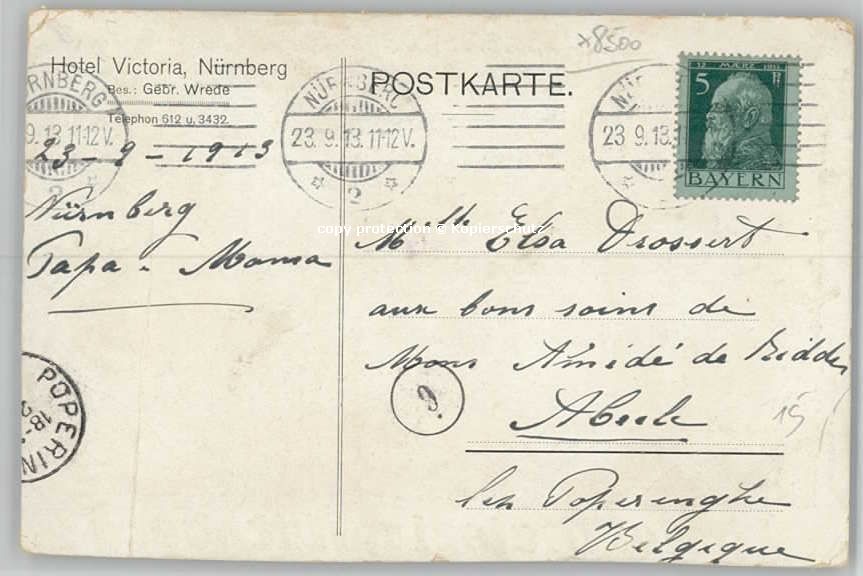 x8500
Hotel Victoria, Nürnberg
Bes.: Gebr. Wrede
Telephon 612 u. 3432.
POSTKARTE.
NÜRNBERG
23.9.13.11-12V.
2
12 MÄRZ 1911
5 Pf
BAYERN
23-9-1913
Nürnberg
Papa - Mama
copy protection © Kopierschutz
Mlle Elsa Drossert
aux bons soins de
Mons Amidé de Ridder
Abeele
15
len Poperinghe
Belgique
POPERIN
18-
9.